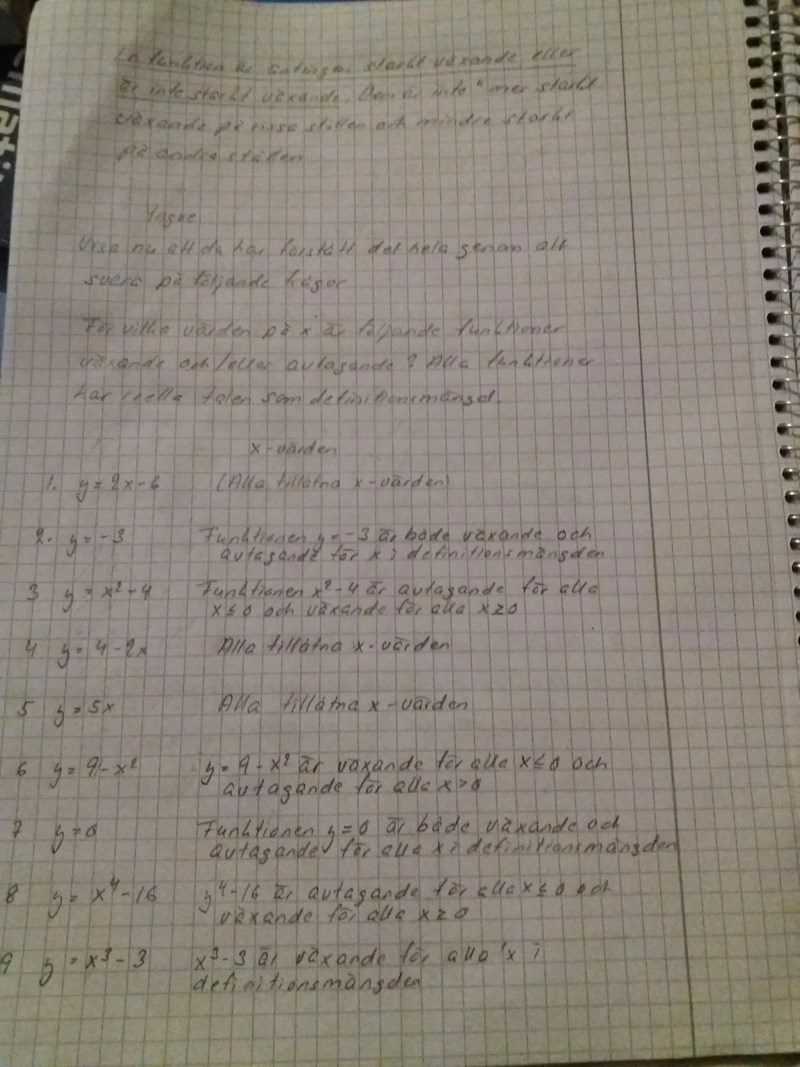 En funktion är antingen starkt växande eller
är inte starkt växande. Den är inte "mer starkt
växande på vissa ställen och mindre starkt
på andra ställen
Yngve
Visa nu att du har förstått det hela genom att
svara på följande frågor
För vilka värden på x är följande funktioner
växande och/eller avtagande? Alla funktioner
har reella talen som definitionsmängd.
x-värden
1. y = 2x-6 (Alla tillåtna x-värden)
2. y = -3 Funktionen y = -3 är både växande och
avtagande för x i definitionsmängden
3 y = x²-4 Funktionen x²-4 är avtagande för alla
x ≤ 0 och växande för alla x ≥ 0
4 y = 4-2x Alla tillåtna x-värden
5 y = 5x Alla tillåtna x-värden
6 y = 9-x² y = 9-x² är växande för alla x ≤ 0 och
avtagande för alla x > 0
7 y = 0 Funktionen y = 0 är både växande och
avtagande för alla x i definitionsmängden
8 y = x⁴-16 y⁴-16 är avtagande för alla x ≤ 0 och
växande för alla x ≥ 0
9 y = x³-3 x³-3 är växande för alla x i
definitionsmängden